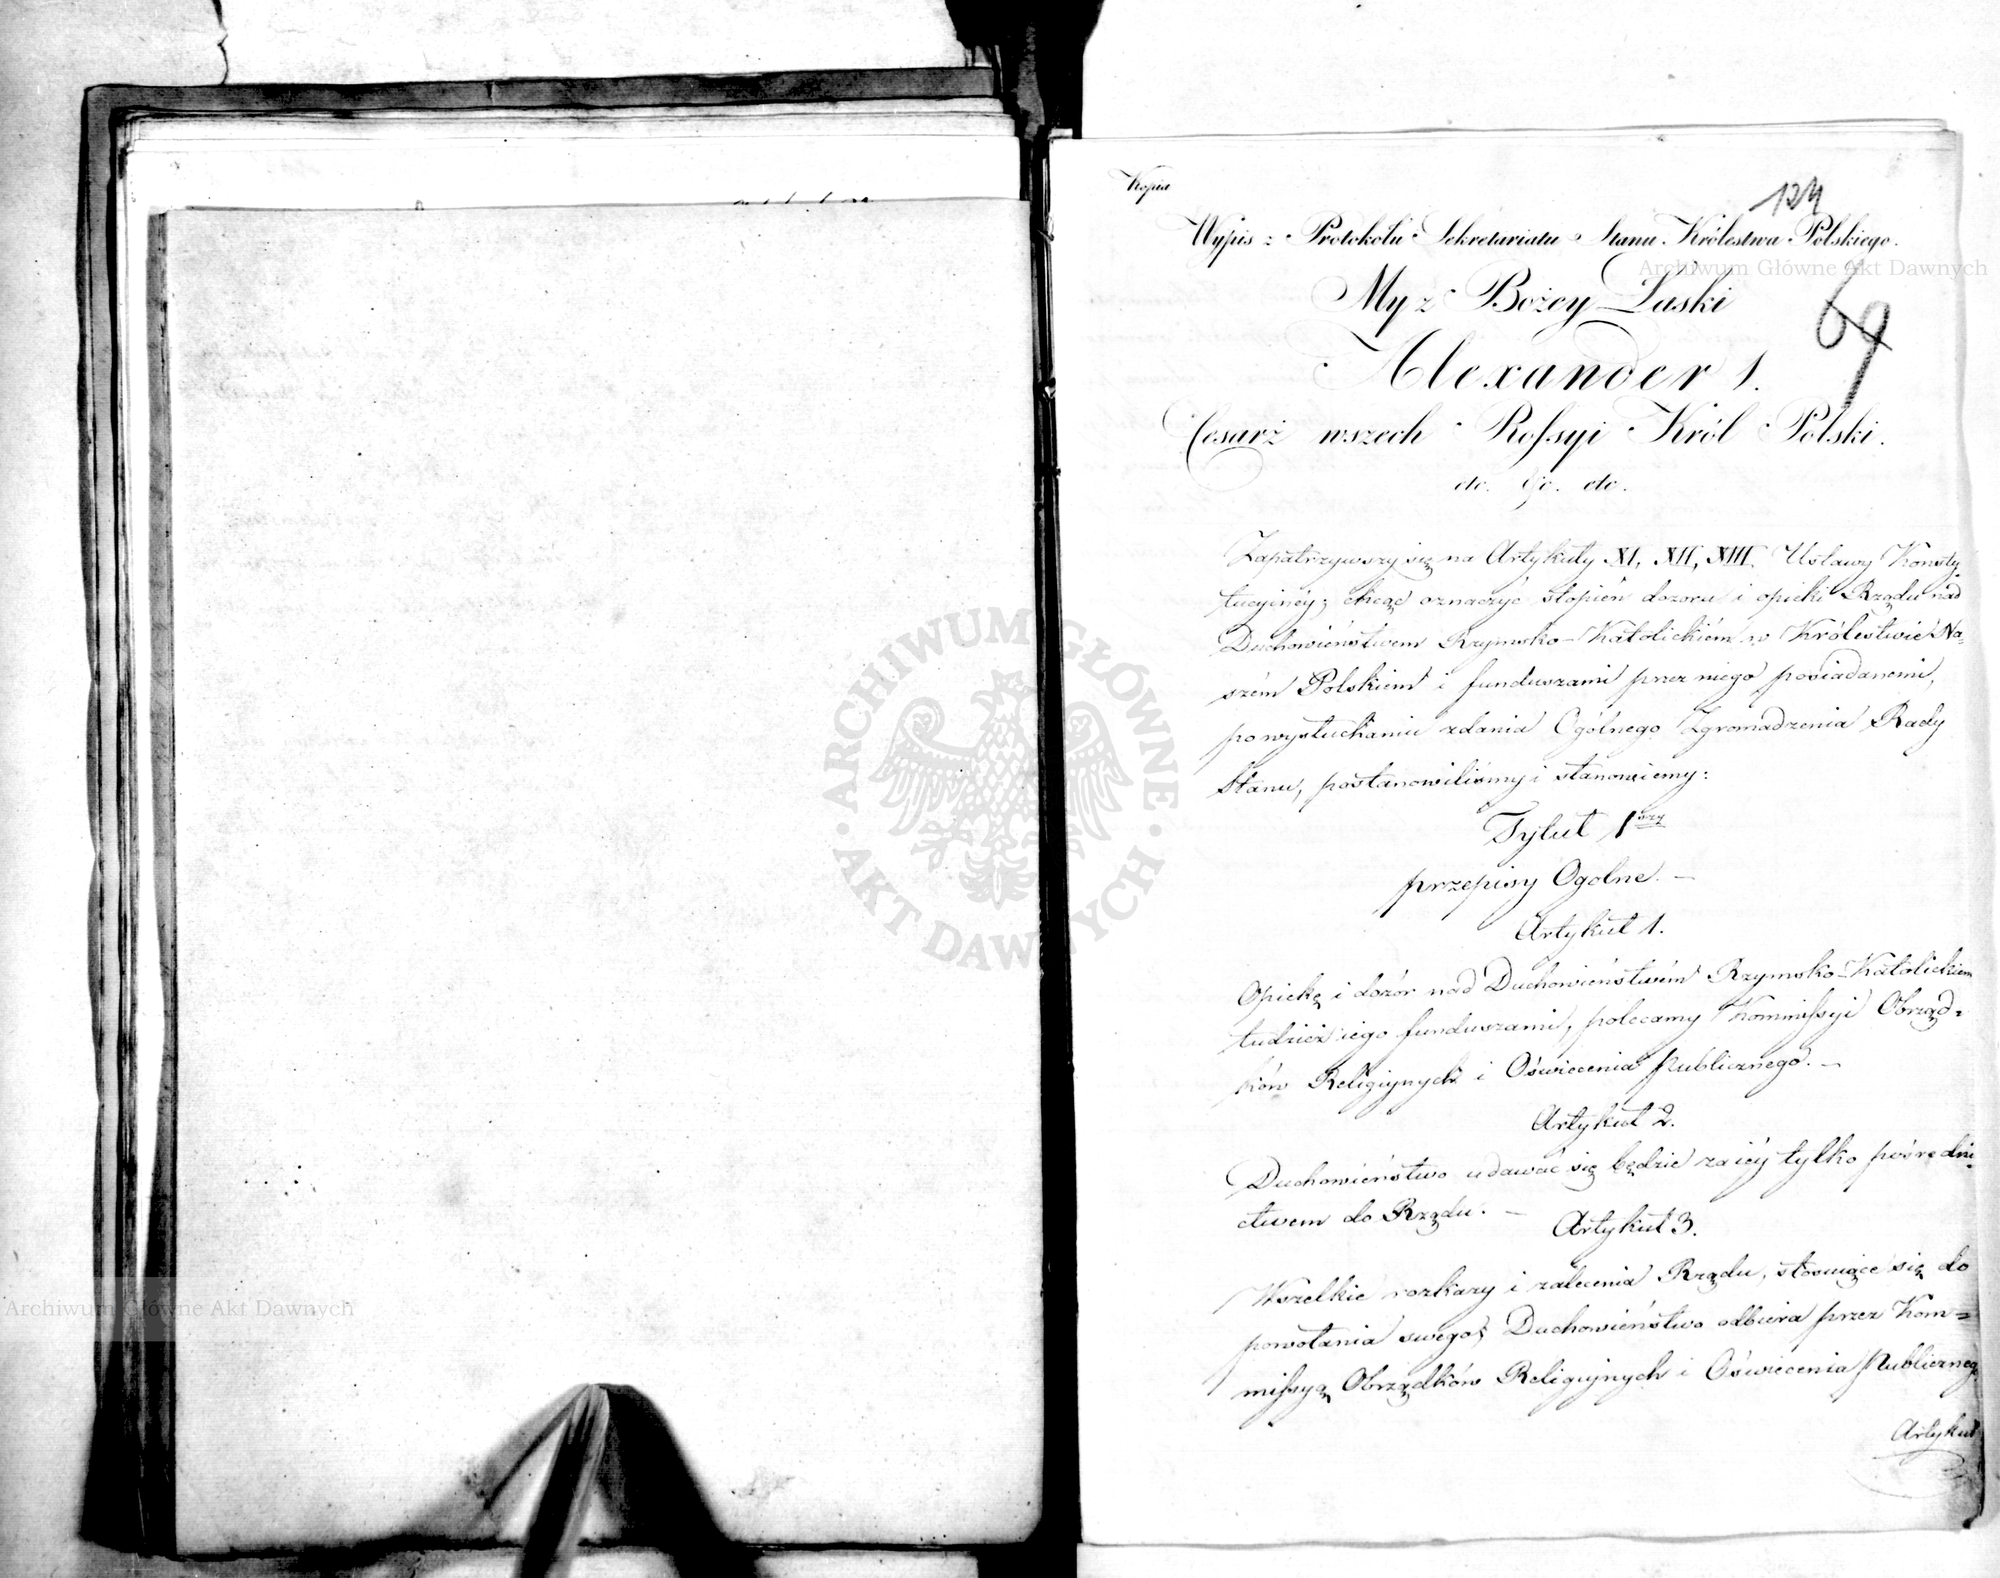 Kopia
124
Wypis z Protokołu Sekretariatu Stanu Królestwa Polskiego.
Archiwum Główne Akt Dawnych
My z Bożey Łaski
Alexander 1.
Cesarż wszech Rossyi Król Polski.
etc. etc. etc.
Zapatrzywszy się na Artykuły XI, XII, XIII. Ustawy Konsty-
tucyinéy; chcąc oznaczyć stopień dozoru i opieki Rządu nad
Duchowieństwem Rzymsko-Katolickiém w Królestwie Na-
szém Polskiem i funduszami przez niego posiadanemi,
po wysłuchaniu zdania Ogólnego Zgromadzenia Rady
Stanu, postanowiliśmy i stanowiemy:
Tytuł 1wszy
przepisy Ogolne. —
Artykuł 1.
Opiekę i dozór nad Duchowieństwém Rzymsko-Katolickiem
tudzież iego funduszami, polecamy Kommissyi Obrząd-
ków Religiynych i Oświecenia Publicznego. —
Artykuł 2.
Duchowieństwo udawać się będzie za iéy tylko pośredni-
ctwem do Rządu. —
Artykuł 3.
Wszelkie rozkazy i zalecenia Rządu, stosuiące się do
powołania swego, Duchowieństwo odbiera przez Kom-
missyą Obrządków Religiynych i Oświecenia Publicznego
Artykuł
ARCHIWUM GŁÓWNE
AKT DAWNYCH
Archiwum Główne Akt Dawnych